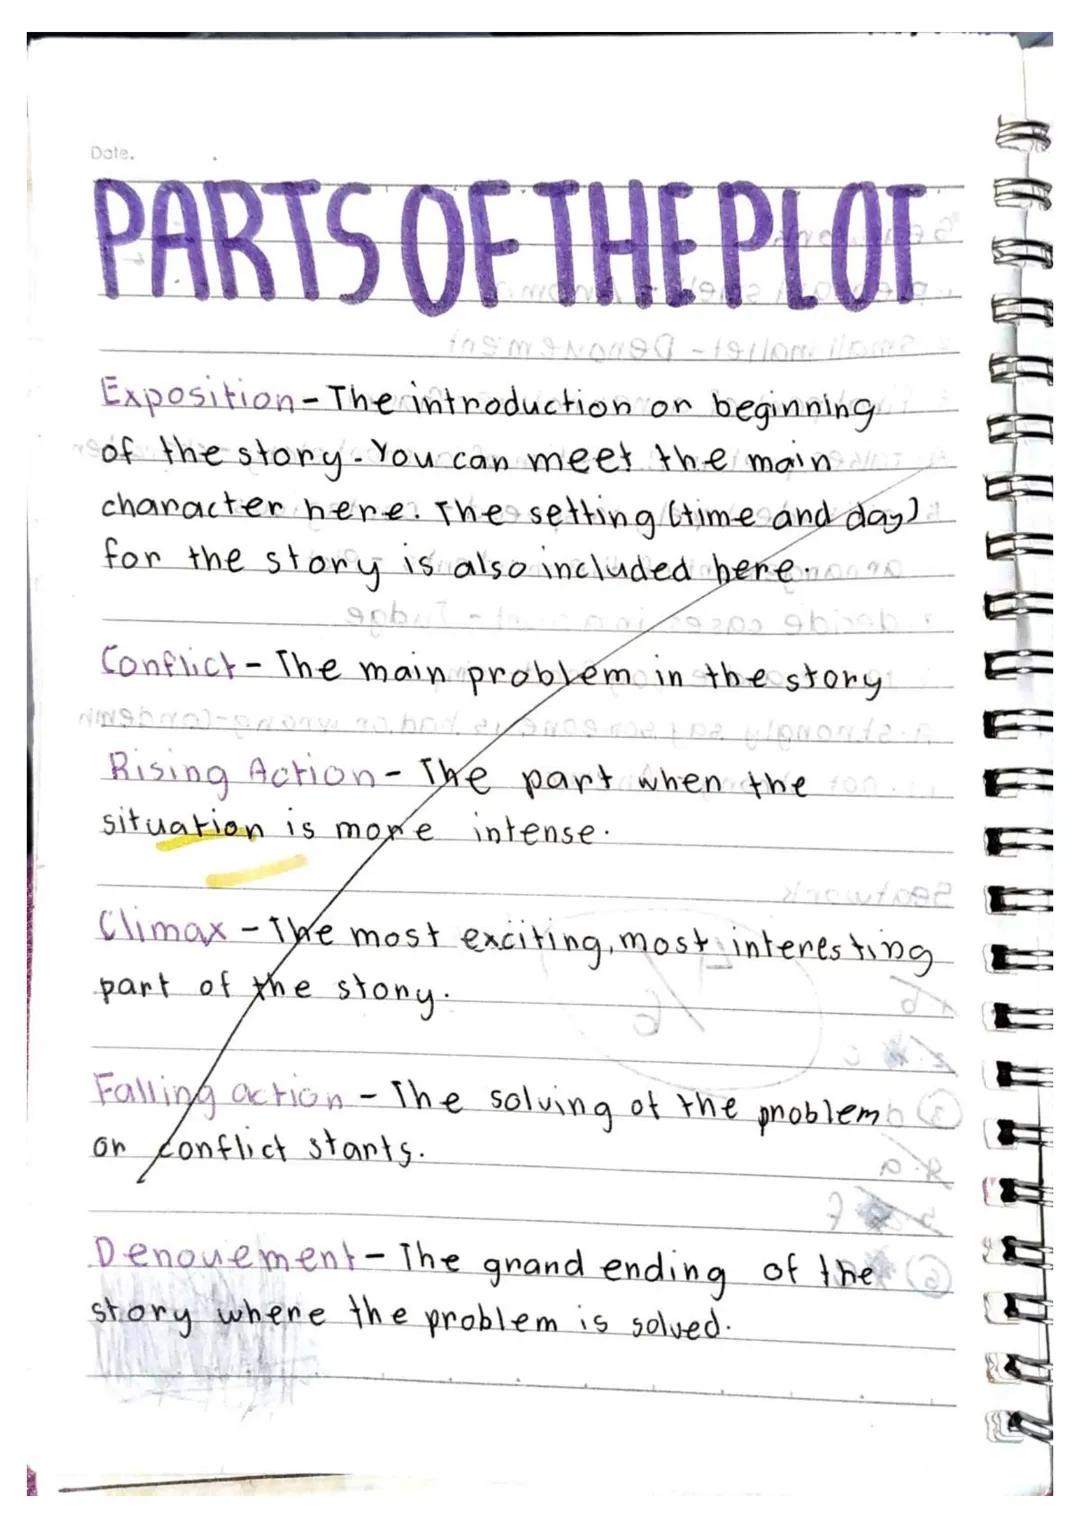 Date.
PARTS OF THE PLOT
Exposition - The introduction or beginning
of the story. You can meet the main
character here. The setting (time and day)
for the story is also included here.
Conflict - The main problem in the story
Rising Action - The part when the
situation is more intense.
Climax - The most exciting, most interesting
part of the story.
Falling action - The solving of the problem
or conflict starts.
Denouement - The grand ending of the
story where the problem is solved.